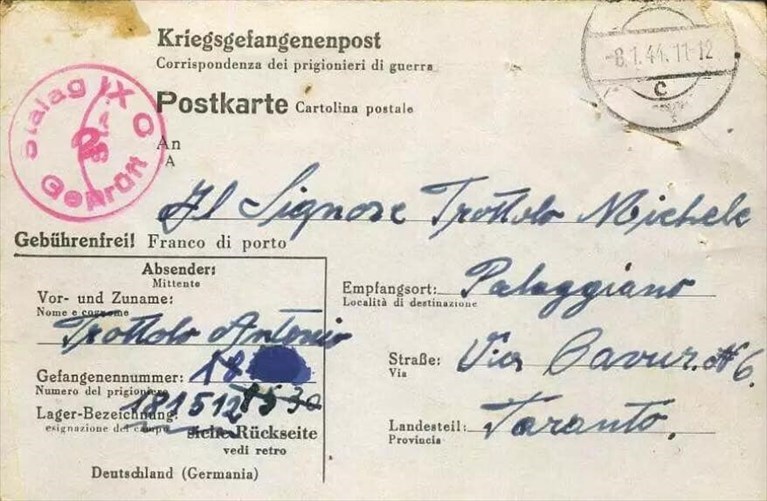 Kriegsgefangenenpost
Corrispondenza dei prigionieri di guerra
-8.1.44.11-12
c
Stalag IX C
Geprüft
Postkarte Cartolina postale
An
A
Il Signore Trottolo Michele
Gebührenfrei! Franco di porto
Absender:
Mittente
Vor- und Zuname:
Nome e cognome
Trottolo Antonio
Gefangenennummer: 18
Numero del prigioniero
181512
Lager-Bezeichnung:
siehe Rückseite
vedi retro
Deutschland (Germania)
Empfangsort: Palaggiano
Località di destinazione
Straße: Via Cavur. N 6.
Via
Landesteil: Taranto.
Provincia